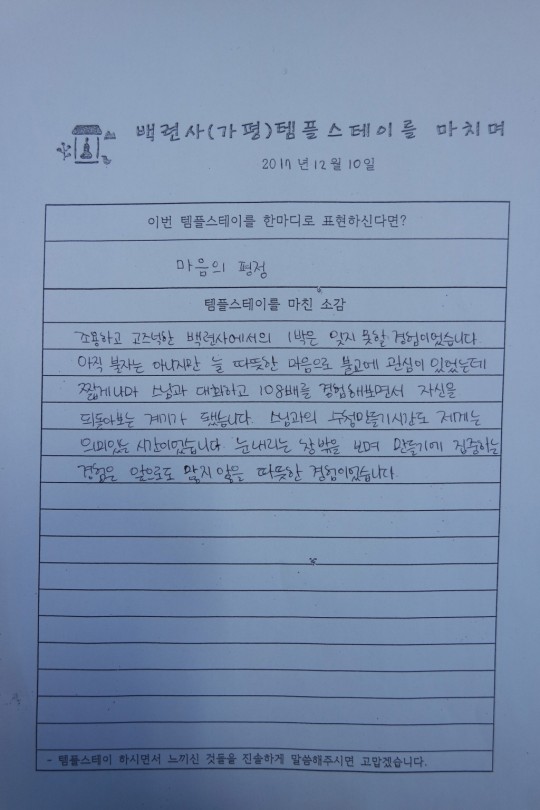 백련사(가평)템플스테이를 마치며
2017년 12월 10일
이번 템플스테이를 한마디로 표현하신다면?
마음의 평정
템플스테이를 마친 소감
조용하고 고즈넉한 백련사에서의 1박은 잊지 못할 경험이었습니다.
아직 불자는 아니지만 늘 따뜻한 마음으로 불교에 관심이 있었는데
짧게나마 스님과 대화하고 108배를 경험해보면서 자신을
되돌아보는 계기가 됐습니다. 스님과의 수정만들기시간도 제게는
의미있는 시간이었습니다. 눈내리는 창밖을 보며 만들기에 집중하는
경험은 앞으로도 맓지 않을 따뜻한 경험이었습니다.
- 템플스테이 하시면서 느끼신 것들을 진솔하게 말씀해주시면 고맙겠습니다.